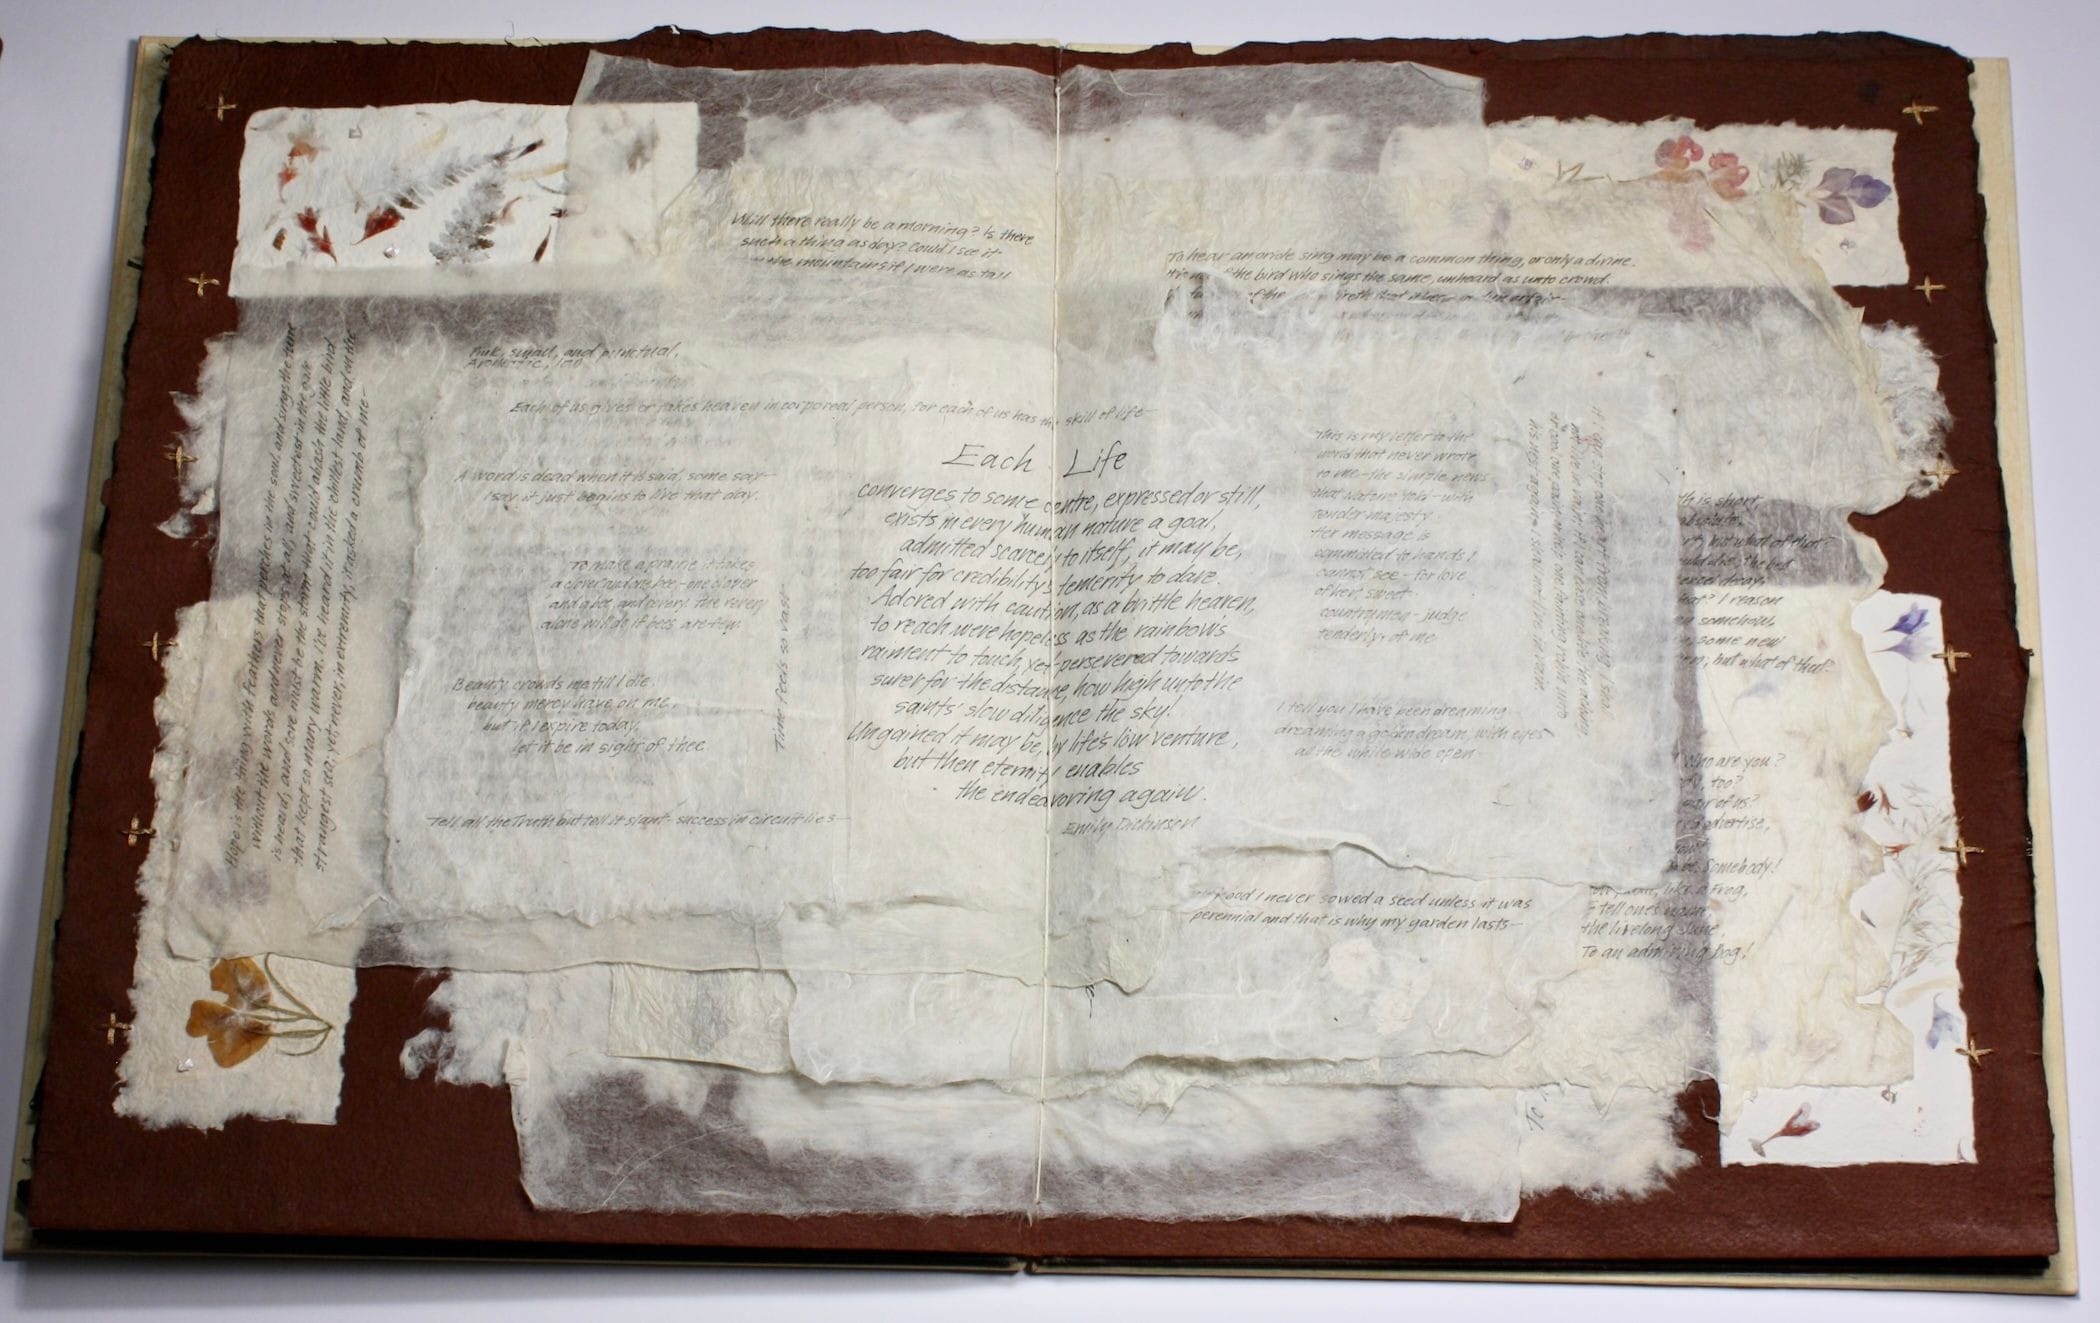 Will there really be a morning? Is there
such a thing as day? Could I see it
the mountains if I were as tall
To hear an oriole sing may be a common thing, or only a divine.
the bird who sings the same, unheard as unto crowd.
of the
Pink, small, and punctual,
Aromatic, low
Each of us gives or takes heaven in corporeal person, for each of us has the skill of life—
A word is dead when it is said, some say—
I say it just begins to live that day.
To make a prairie it takes
a clover and one bee,—one clover
and a bee, and revery. The revery
alone will do if bees are few.
Beauty crowds me till I die.
beauty mercy have on me.
but if I expire today
let it be in sight of thee
Tell all the Truth but tell it slant—success in circuit lies—
Time feels so vast
Hope is the thing with Feathers that perches in the soul, and sings the tune
without the words and never stops at all, and sweetest in the gale
is heard; and sore must be the storm that could abash the little bird
that kept so many warm. I've heard it in the chillest land, and on the
strangest sea; yet, never, in extremity, it asked a crumb of me—
Each Life
converges to some centre, expressed or still,
exists in every human nature a goal,
admitted scarcely to itself, it may be,
too fair for credibility's temerity to dare.
Adored with caution, as a brittle heaven,
to reach were hopeless as the rainbow's
raiment to touch, yet persevered towards
surer for the distance, how high unto the
saints' slow diligence the sky!
Ungained it may be, by life's low venture,
but then eternity enables
the endeavoring again.
Emily Dickinson
This is my letter to the
world that never wrote
to me—the simple news
that Nature told—with
tender majesty
Her message is
committed to hands I
cannot see—for love
of her, sweet
countrymen—judge
tenderly, of me
I tell you I have been dreaming
dreaming a golden dream, with eyes
all the while wide open—
If I can stop one heart from breaking I shall
not live in vain if I can ease one life the aching
or cool one pain or help one fainting robin unto
its nest again—I shall not live in vain.
th is short,
absolute,
but what of that?
could die: the best
excel decay;
that? I reason
somehow,
some new
but what of that?
Who are you?
too?
of us?
advertise,
you
be Somebody!
like a Frog,
tell one's name,
the livelong June
To an admiring Bog!
I never sowed a seed unless it was
perennial and that is why my garden lasts—
To